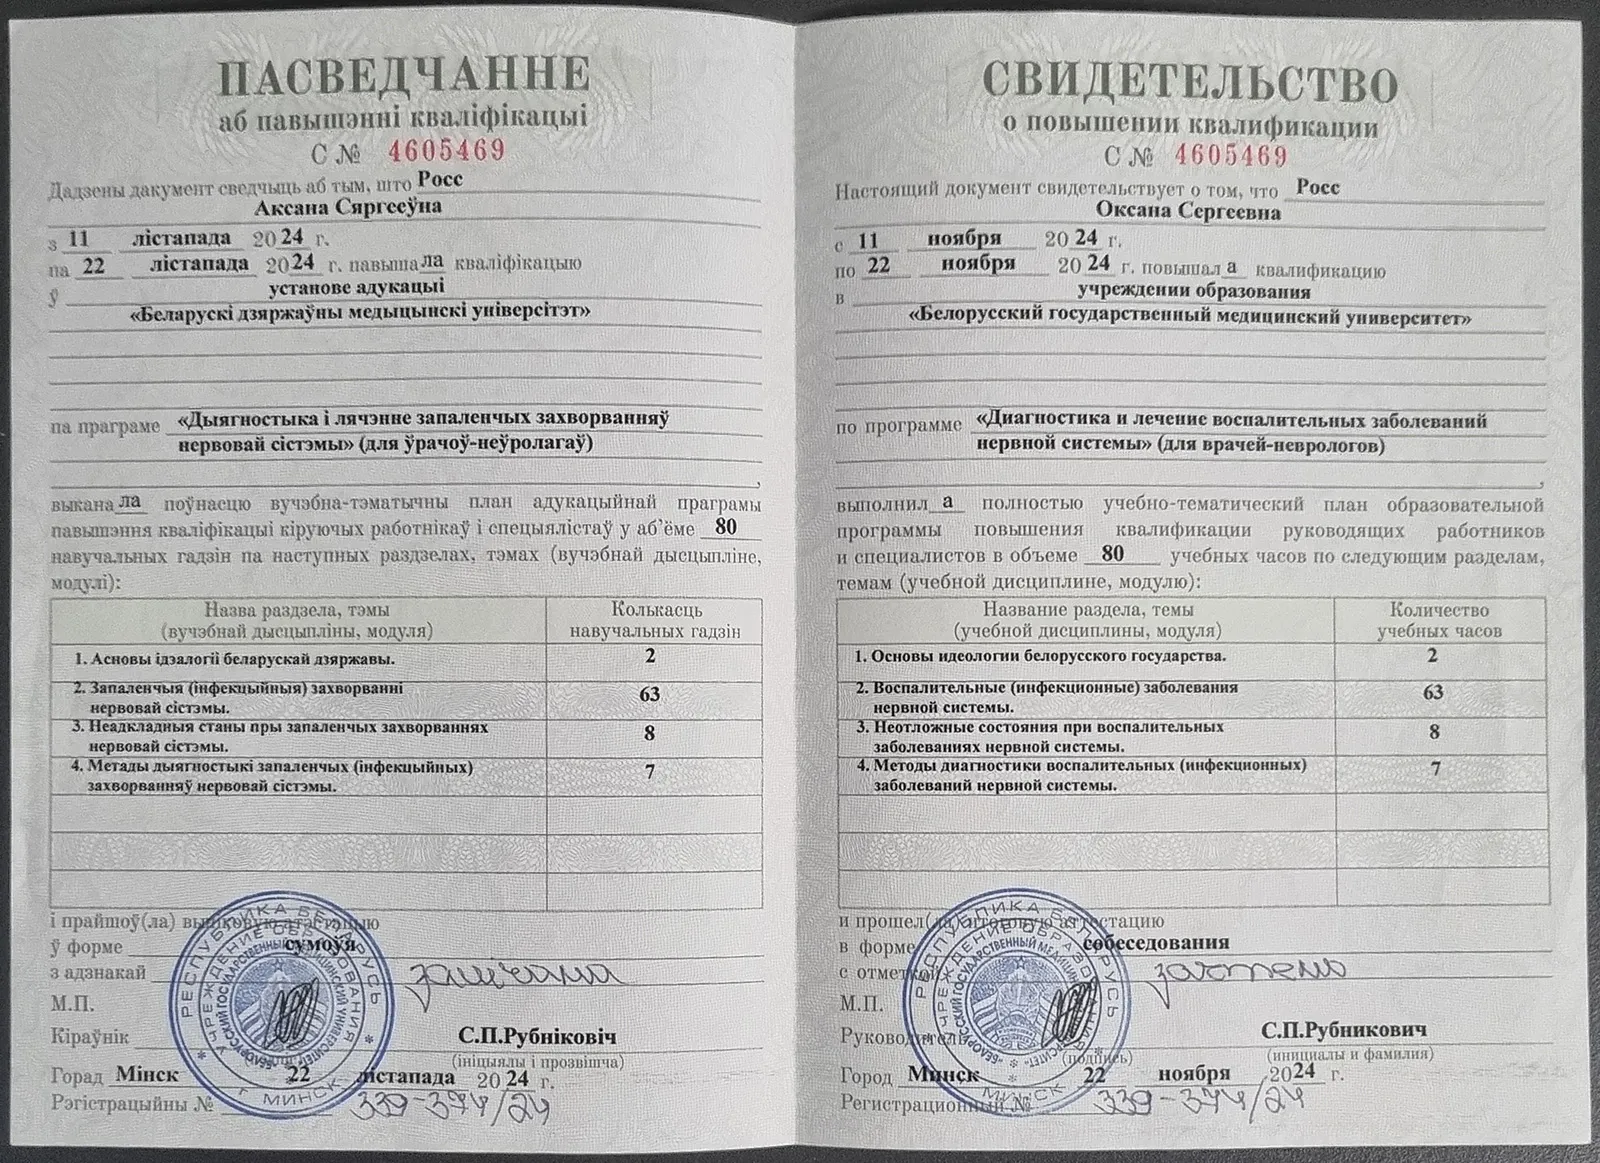 ПАСВЕДЧАННЕ
аб павышэнні кваліфікацыі
С № 4605469
Дадзены дакумент сведчыць аб тым, што Росс
Аксана Сяргееўна
з 11 лістапада 2024 г.
па 22 лістапада 2024 г. павышала кваліфікацыю
ў установе адукацыі
«Беларускі дзяржаўны медыцынскі універсітэт»
па праграме «Дыягностыка і лячэнне запаленчых захворванняў
нервовай сістэмы» (для ўрачоў-неўролагаў)
,
выканала поўнасцю вучэбна-тэматычны план адукацыйнай праграмы
павышэння кваліфікацыі кіруючых работнікаў і спецыялістаў у аб'ёме 80
навучальных гадзін па наступных раздзелах, тэмах (вучэбнай дысцыпліне,
модулі):
Назва раздзела, тэмы
(вучэбнай дысцыпліны, модуля)
Колькасць
навучальных гадзін
1. Асновы ідэалогіі беларускай дзяржавы. 2
2. Запаленчыя (інфекцыйныя) захворванні
нервовай сістэмы. 63
3. Неадкладныя станы пры запаленчых захворваннях
нервовай сістэмы. 8
4. Метады дыягностыкі запаленчых (інфекцыйных)
захворванняў нервовай сістэмы. 7
і прайшоў(ла) выніковую атэстацыю
ў форме сумоўя
з адзнакай залічана
М.П.
Кіраўнік С.П.Рубніковіч
(ініцыялы і прозвішча)
Горад Мінск 22 лістапада 2024 г.
Рэгістрацыйны № 339-374/24
СВИДЕТЕЛЬСТВО
о повышении квалификации
С № 4605469
Настоящий документ свидетельствует о том, что Росс
Оксана Сергеевна
с 11 ноября 2024 г.
по 22 ноября 2024 г. повышала квалификацию
в учреждении образования
«Белорусский государственный медицинский университет»
по программе «Диагностика и лечение воспалительных заболеваний
нервной системы» (для врачей-неврологов)
,
выполнила полностью учебно-тематический план образовательной
программы повышения квалификации руководящих работников
и специалистов в объеме 80 учебных часов по следующим разделам,
темам (учебной дисциплине, модулю):
Название раздела, темы
(учебной дисциплины, модуля)
Количество
учебных часов
1. Основы идеологии белорусского государства. 2
2. Воспалительные (инфекционные) заболевания
нервной системы. 63
3. Неотложные состояния при воспалительных
заболеваниях нервной системы. 8
4. Методы диагностики воспалительных (инфекционных)
заболеваний нервной системы. 7
и прошел(ла) итоговую аттестацию
в форме собеседования
с отметкой зачтено
М.П.
Руководитель С.П.Рубникович
(подпись) (инициалы и фамилия)
Город Минск 22 ноября 2024 г.
Регистрационный № 339-374/24
РЕСПУБЛИКА БЕЛАРУСЬ
УЧРЕЖДЕНИЕ ОБРАЗОВАНИЯ
«БЕЛОРУССКИЙ ГОСУДАРСТВЕННЫЙ МЕДИЦИНСКИЙ УНИВЕРСИТЕТ»
г. МИНСК
РЕСПУБЛИКА БЕЛАРУСЬ
УЧРЕЖДЕНИЕ ОБРАЗОВАНИЯ
«БЕЛОРУССКИЙ ГОСУДАРСТВЕННЫЙ МЕДИЦИНСКИЙ УНИВЕРСИТЕТ»
МИНСК